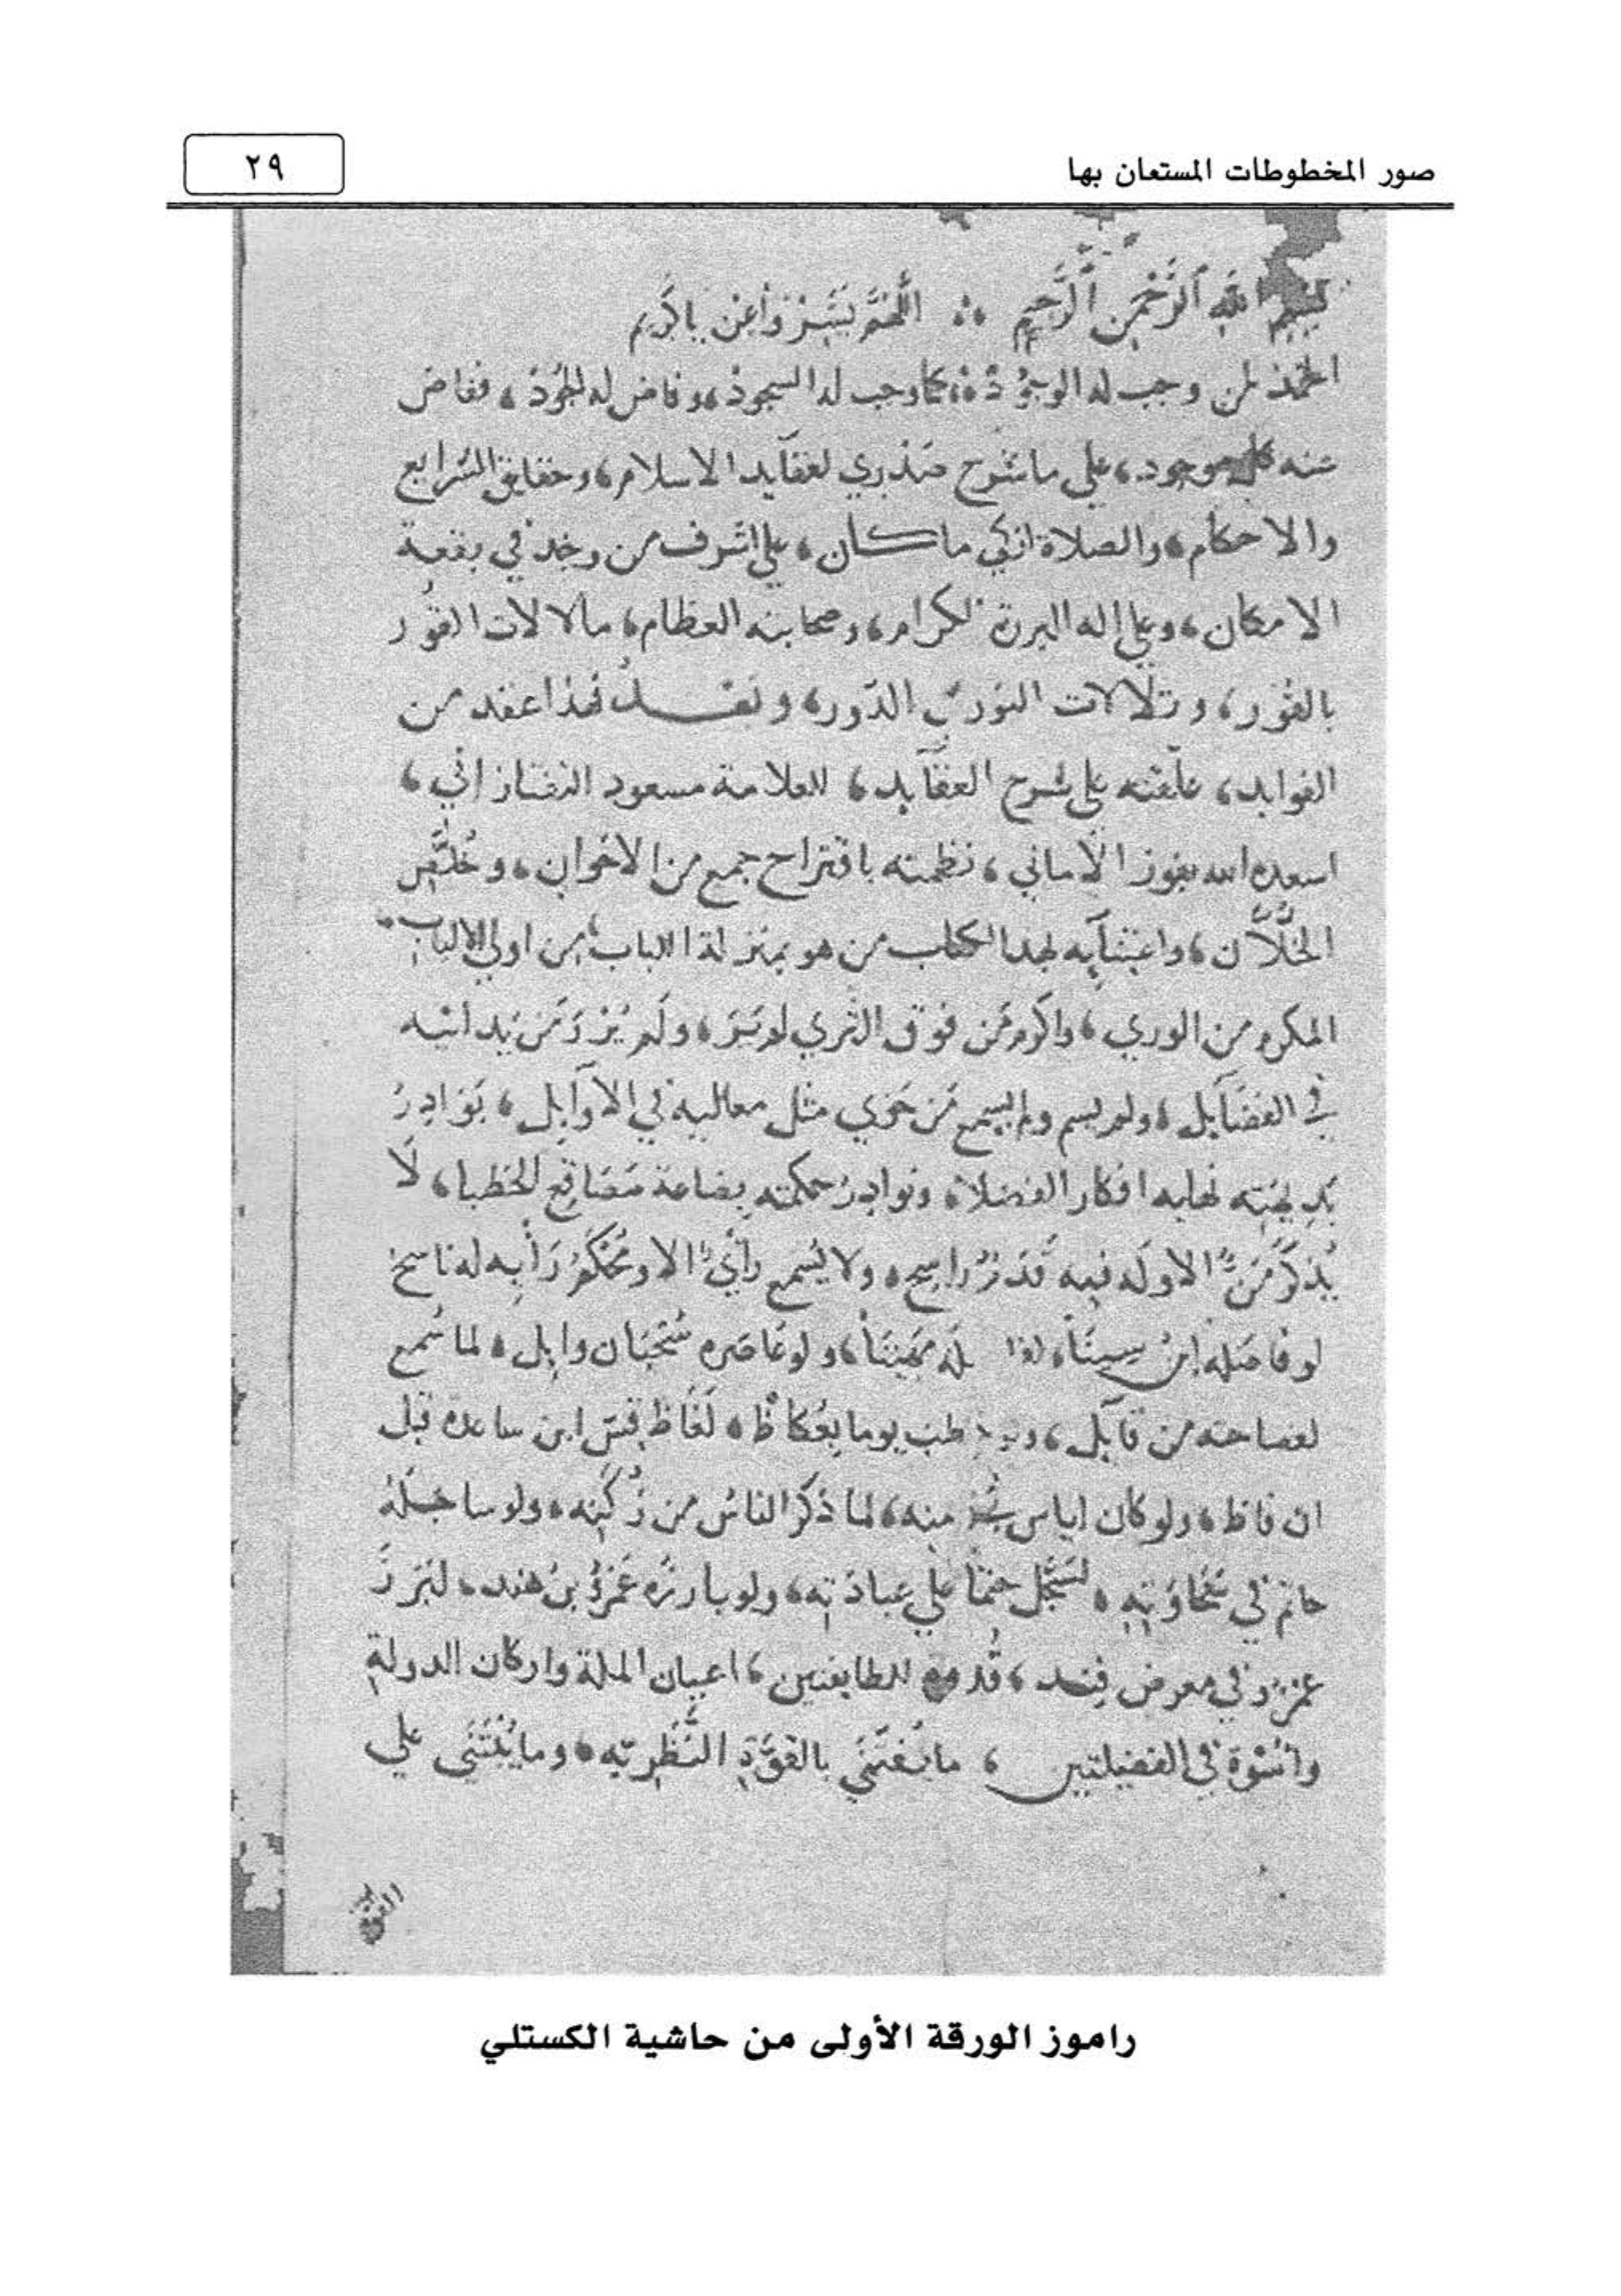 صور المخطوطات المستعان بها
٢٩
بسم الله الرحمن الرحيم ؞ اللهم يسر وأعن ياكريم
الحمد لمن وجب له الوجود، كما وجب له السجود، وفاض له الجود، ففاض
منه كل موجود، على ما شرح صدري لعقايد الاسلام، وحقايق الشرايع
والاحكام، والصلاة ازكى ما كان، على اشرف من وجد في بقعة
الامكان، وعلى اله البررة الكرام، وصحابته العظام، مالالات الفور
بالفور، وتلالات النور الدور، وبعد فهذا عقد من
الفوايد، علقته على شرح العقايد، للعلامة مسعود التفتازاني،
اسعده الله بفوز الأماني، نظمته باقتراح جمع من الاخوان، وخلص
الخلان، واعتنايه لهذا الكتاب من هو بمنزلة الباب، من اولي الالباب
المكرم من الورى، واكرم من فوق الثرى لم تر، ولم يزر من يدانيه
في الفضايل، ولم يسم ولم يسمع من حوى مثل معاليه في الأوايل، بوادر
بديهته نهاية افكار الفضلا، ونوادر حكمته بضاعة مصاقع الخطبا، لا
يذكر من الا وله فيه قدر راسخ، ولا يسمع رأي الا ومحكم رأيه له ناسخ
لو فاضله ابن سينا، له مهينا، ولو عاصره سحبان وايل، لما سمع
لفصاحته من قايل، يوما بعكاظ، لفاظ قس ابن ساعده قبل
ان فاظ، ولو كان اياس منه، لما ذكر الناس من زكنه، ولو ساجله
حاتم في سخاوته، لسجل حتما على عباذته، ولو بارزه عمرو بن هند، لبرز
في معرض فند، قدمع للطايفتين، اعيان الملة واركان الدولة
واسوة في الفضيلتين، ما يغتنى بالقوة النظرية، وما يبتنى على
راموز الورقة الأولى من حاشية الكستلي